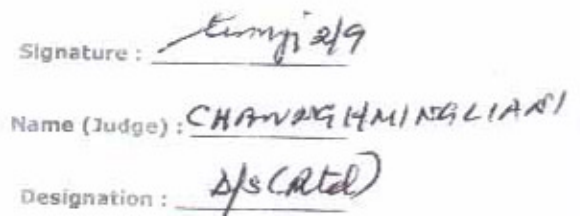 Signature : 2/9
Name (Judge) : CHAWNGHMINGLIANI
Designation : D/S (Rtd)